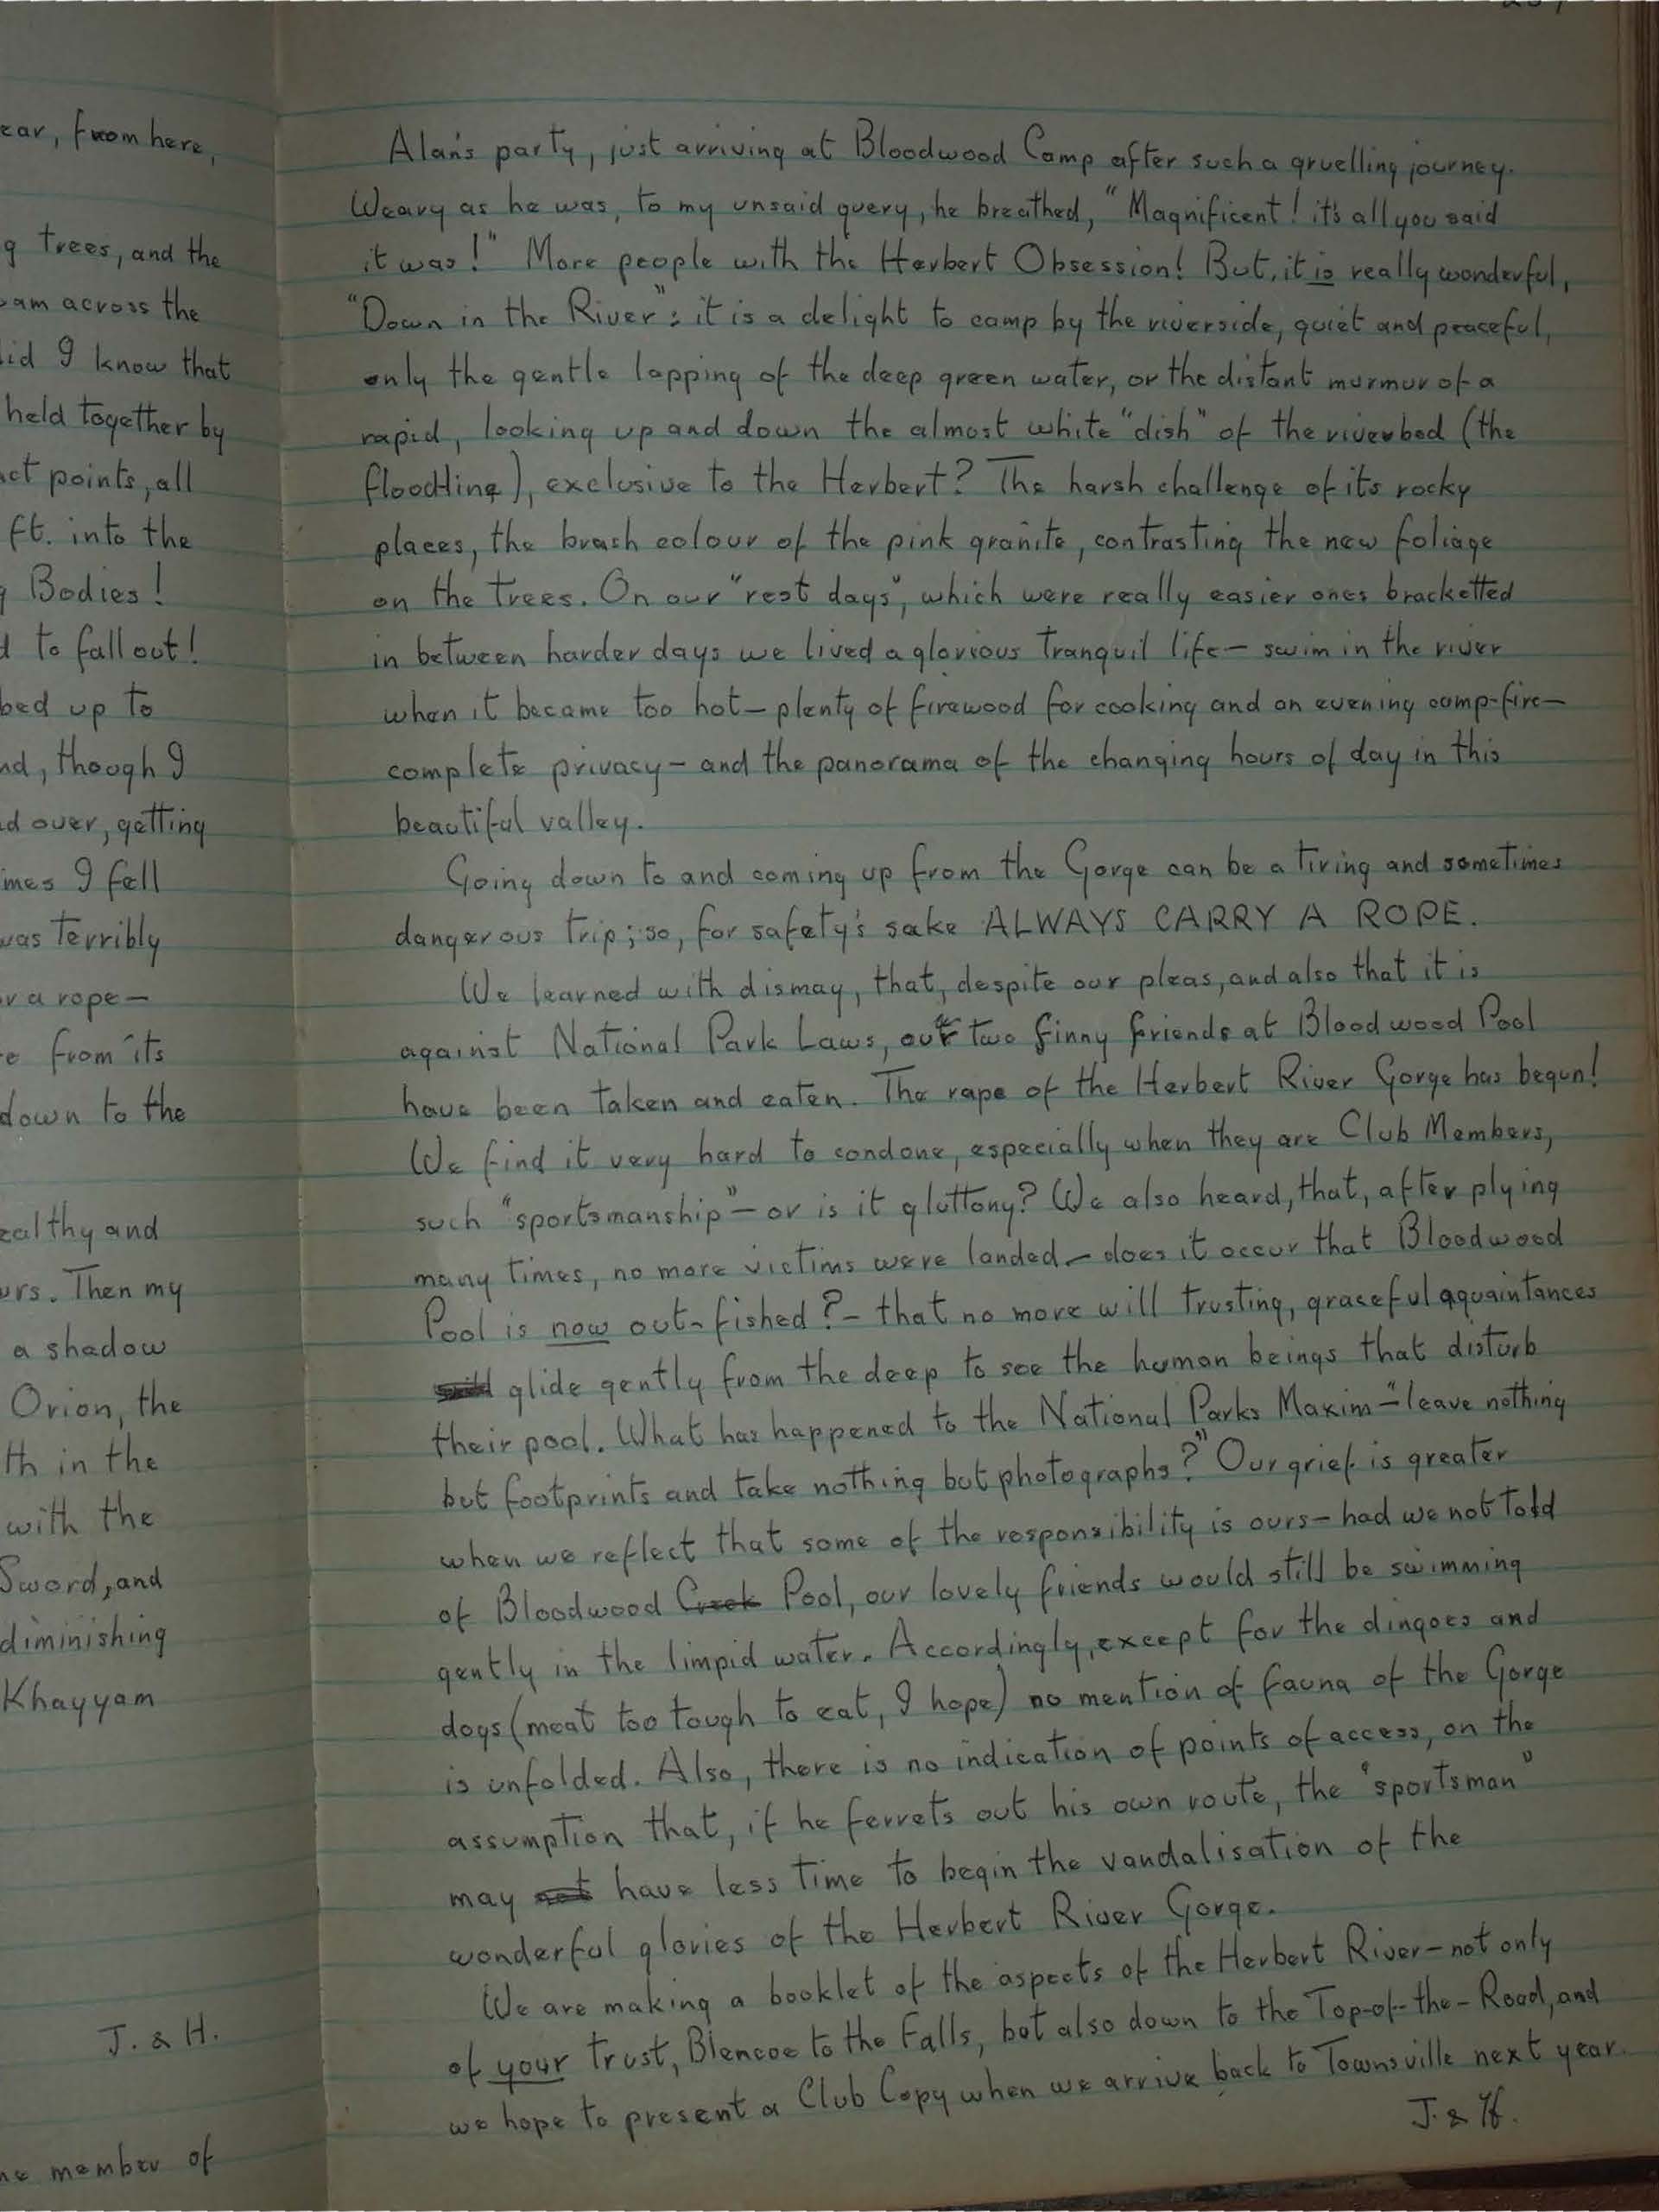 ear, from here,
g trees, and the
am across the
did I know that
held together by
act points, all
ft. into the
Bodies!
d to fall out!
bed up to
nd, though I
d over, getting
imes I fell
was terribly
or a rope—
e from its
down to the
ealthy and
urs. Then my
a shadow
Orion, the
th in the
with the
Sword, and
diminishing
Khayyam
J. & H.
ne member of
Alan's party, just arriving at Bloodwood Camp after such a gruelling journey.
Weary as he was, to my unsaid query, he breathed, "Magnificent! it's all you said
it was!" More people with the Herbert Obsession! But, it is really wonderful,
"Down in the River": it is a delight to camp by the riverside, quiet and peaceful,
only the gentle lapping of the deep green water, or the distant murmur of a
rapid, looking up and down the almost white "dish" of the riverbed (the
floodline), exclusive to the Herbert? The harsh challenge of its rocky
places, the brash colour of the pink granite, contrasting the new foliage
on the trees. On our "rest days", which were really easier ones bracketted
in between harder days we lived a glorious tranquil life— swim in the river
when it became too hot— plenty of firewood for cooking and an evening camp-fire—
complete privacy— and the panorama of the changing hours of day in this
beautiful valley.
Going down to and coming up from the Gorge can be a tiring and sometimes
dangerous trip; so, for safety's sake ALWAYS CARRY A ROPE.
We learned with dismay, that, despite our pleas, and also that it is
against National Park Laws, our two finny friends at Bloodwood Pool
have been taken and eaten. The rape of the Herbert River Gorge has begun!
We find it very hard to condone, especially when they are Club Members,
such "sportsmanship"— or is it gluttony? We also heard, that, after plying
many times, no more victims were landed— does it occur that Bloodwood
Pool is now out-fished?— that no more will trusting, graceful aquaintances
glide gently from the deep to see the human beings that disturb
their pool. What has happened to the National Parks Maxim—"leave nothing
but footprints and take nothing but photographs?" Our grief is greater
when we reflect that some of the responsibility is ours— had we not told
of Bloodwood Creek Pool, our lovely friends would still be swimming
gently in the limpid water. Accordingly, except for the dingoes and
dogs (meat too tough to eat, I hope) no mention of fauna of the Gorge
is unfolded. Also, there is no indication of points of access, on the
assumption that, if he ferrets out his own route, the "sportsman"
may not have less time to begin the vandalisation of the
wonderful glories of the Herbert River Gorge.
We are making a booklet of the aspects of the Herbert River— not only
of your trust, Blencoe to the Falls, but also down to the Top-of-the-Road, and
we hope to present a Club Copy when we arrive back to Townsville next year.
J. & H.